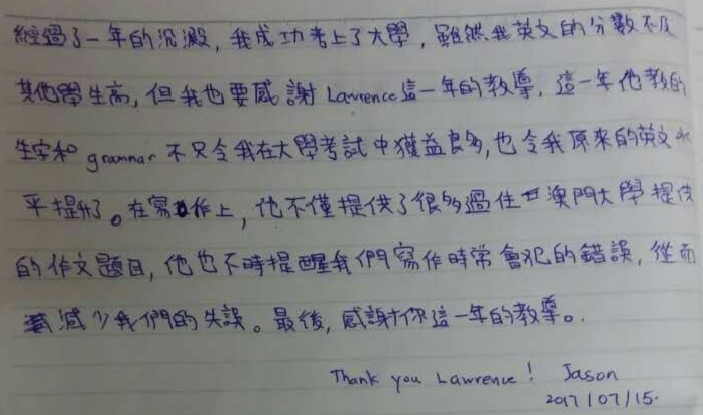 經過了一年的沉澱，我成功考上了大學，雖然我英文的分數不及
其他學生高，但我也要感謝 Lawrence 這一年的教導，這一年他教的
生字和 grammar 不只令我在大學考試中獲益良多，也令我原來的英文水
平提升了。在寫作上，他不僅提供了很多過住澳門大學提供
的作文題目，他也不時提醒我們寫作時常會犯的錯誤，從而
減少我們的失誤。最後，感謝你這一年的教導。
Thank you Lawrence! Jason
2017/07/15.